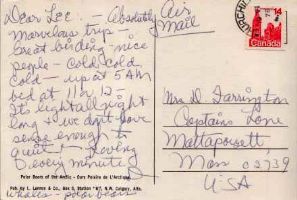 Dear Lee. Absolutely
Marvelous trip -
Great birding nice
people - cold cold
cold - up at 5 AM
bed at 11 or 12 -
Its light all night
long & we don't have
sense enough to
quit! - Loving
every minute
whales - polar bears
Polar Bears of the Arctic - Ours Polaire de L'Arctique
Air
Mail
CHURCHILL
14
Canada
Mrs D Farrington
Captains Lane
Mattapoisett
Mass 02739
USA